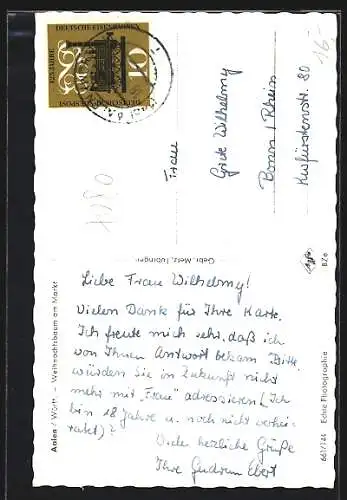 125 JAHRE
DEUTSCHE EISENBAHNEN
10
DEUTSCHE BUNDESPOST
16,-
Frau
Grete Wilhelmy
Bonn / Rhein
Kurfürstenstr. 80
1080
Gebr. Metz, Tübingen
BZ6
Liebe Frau Wilhelmy!
Vielen Dank für Ihre Karte.
Ich freute mich sehr, daß ich
von Ihnen Antwort bekam. Bitte
würden Sie in Zukunft nicht
mehr mit „Frau" adressieren (Ich
bin 18 Jahre u. noch nicht verhei-
ratet)?
Viele herzliche Grüße
Ihre Gudrun Ebert
Aalen / Württ. - Weihnachtsbaum am Markt
661/144 Echte Photographie